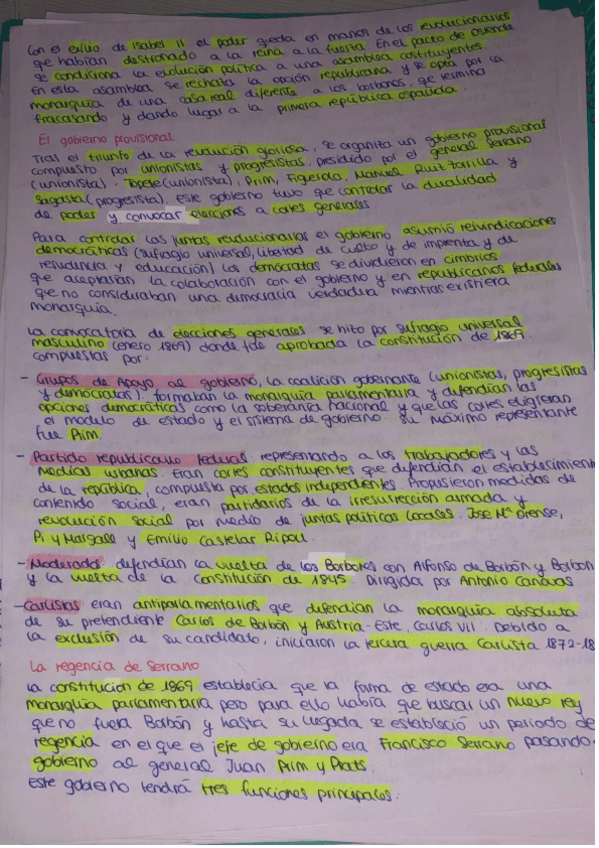 Con el exilio de Isabel II el poder queda en manos de los revolucionarios
que habían destronado a la reina a la fuerza. En el pacto de Ostende
se condiciona la evolución política a una asamblea costituyentes.
En esta asamblea se rechaza la opción republicana y se opta por la
monarquía de una casa real diferente a los borbones, que termino
fracasando y dando lugar a la primera república española.
El gobierno provisional.
Tras el triunfo de la revolución gloriosa, se organiza un gobierno provisional
compuesto por unionistas y progresistas, presidido por el general Serrano
(unionista). Topete (unionista), Prim, Figerola, Manuel Ruiz Zorrilla y
Sagasta (progresista). Este gobierno tuvo que controlar la dualidad
de poder y convocar elecciones a cortes generales
Para controlar las juntas revolucionarios el gobierno asumió reivindicaciones
democráticas (sufragio universal, libertad de culto y de imprenta y de
residencia y educación) los demócratas se dividieron en cimbrios
que aceptarían la colaboración con el gobierno y en republicanos federales
que no consideraban una democracia verdadera mientras existiera
monarquía.
La convocatoria de elecciones generales se hizo por sufragio universal
masculino (enero 1869) donde fue aprobada la constitución de 1869.
compuestas por:
- Grupos de Apoyo al gobierno, la coalición gobernante (unionistas, progresistas
y demócratas). formaban la monarquía parlamentaria y defendían las
opciones democráticas como la soberanía nacional y que las cortes eligieran
el modelo de estado y el sistema de gobierno. Su máximo representante
fue Prim.
- Partido republicano federal representando a los trabajadores y las
medias urbanas. Eran cortes constituyentes que defendían el establecimien
de la república, compuesta por estados independientes. Propusieron medidas de
contenido social, eran partidarios de la irresurrección armada y
revolución social por medio de juntas políticas locales. José Mª Orense,
Pi y Margall y Emilio Castelar Ripoll.
- Moderados defendían la vuelta de los Borbones con Alfonso de Borbón y Borbon
y la vuelta de la Constitución de 1845. Dirigida por Antonio Canovas
- Carlistas eran antiparlamentarios que defendían la monarquía absoluta
de su pretendiente Carlos de Borbón y Austria-Este, Carlos VII. Debido a
la exclusión de su candidato, iniciaron la tercera guerra Carlista 1872-18
La regencia de Serrano
La constitucion de 1869 establecía que la forma de estado era una
monarquía parlamentaria pero para ello había que buscar un nuevo rey
que no fuera Borbón y hasta su llegada se estableció un período de
regencia en el que el jefe de gobierno era Francisco Serrano pasando
gobierno al general Juan Prim y Prats.
Este gobierno tendrá tres funciones principales: